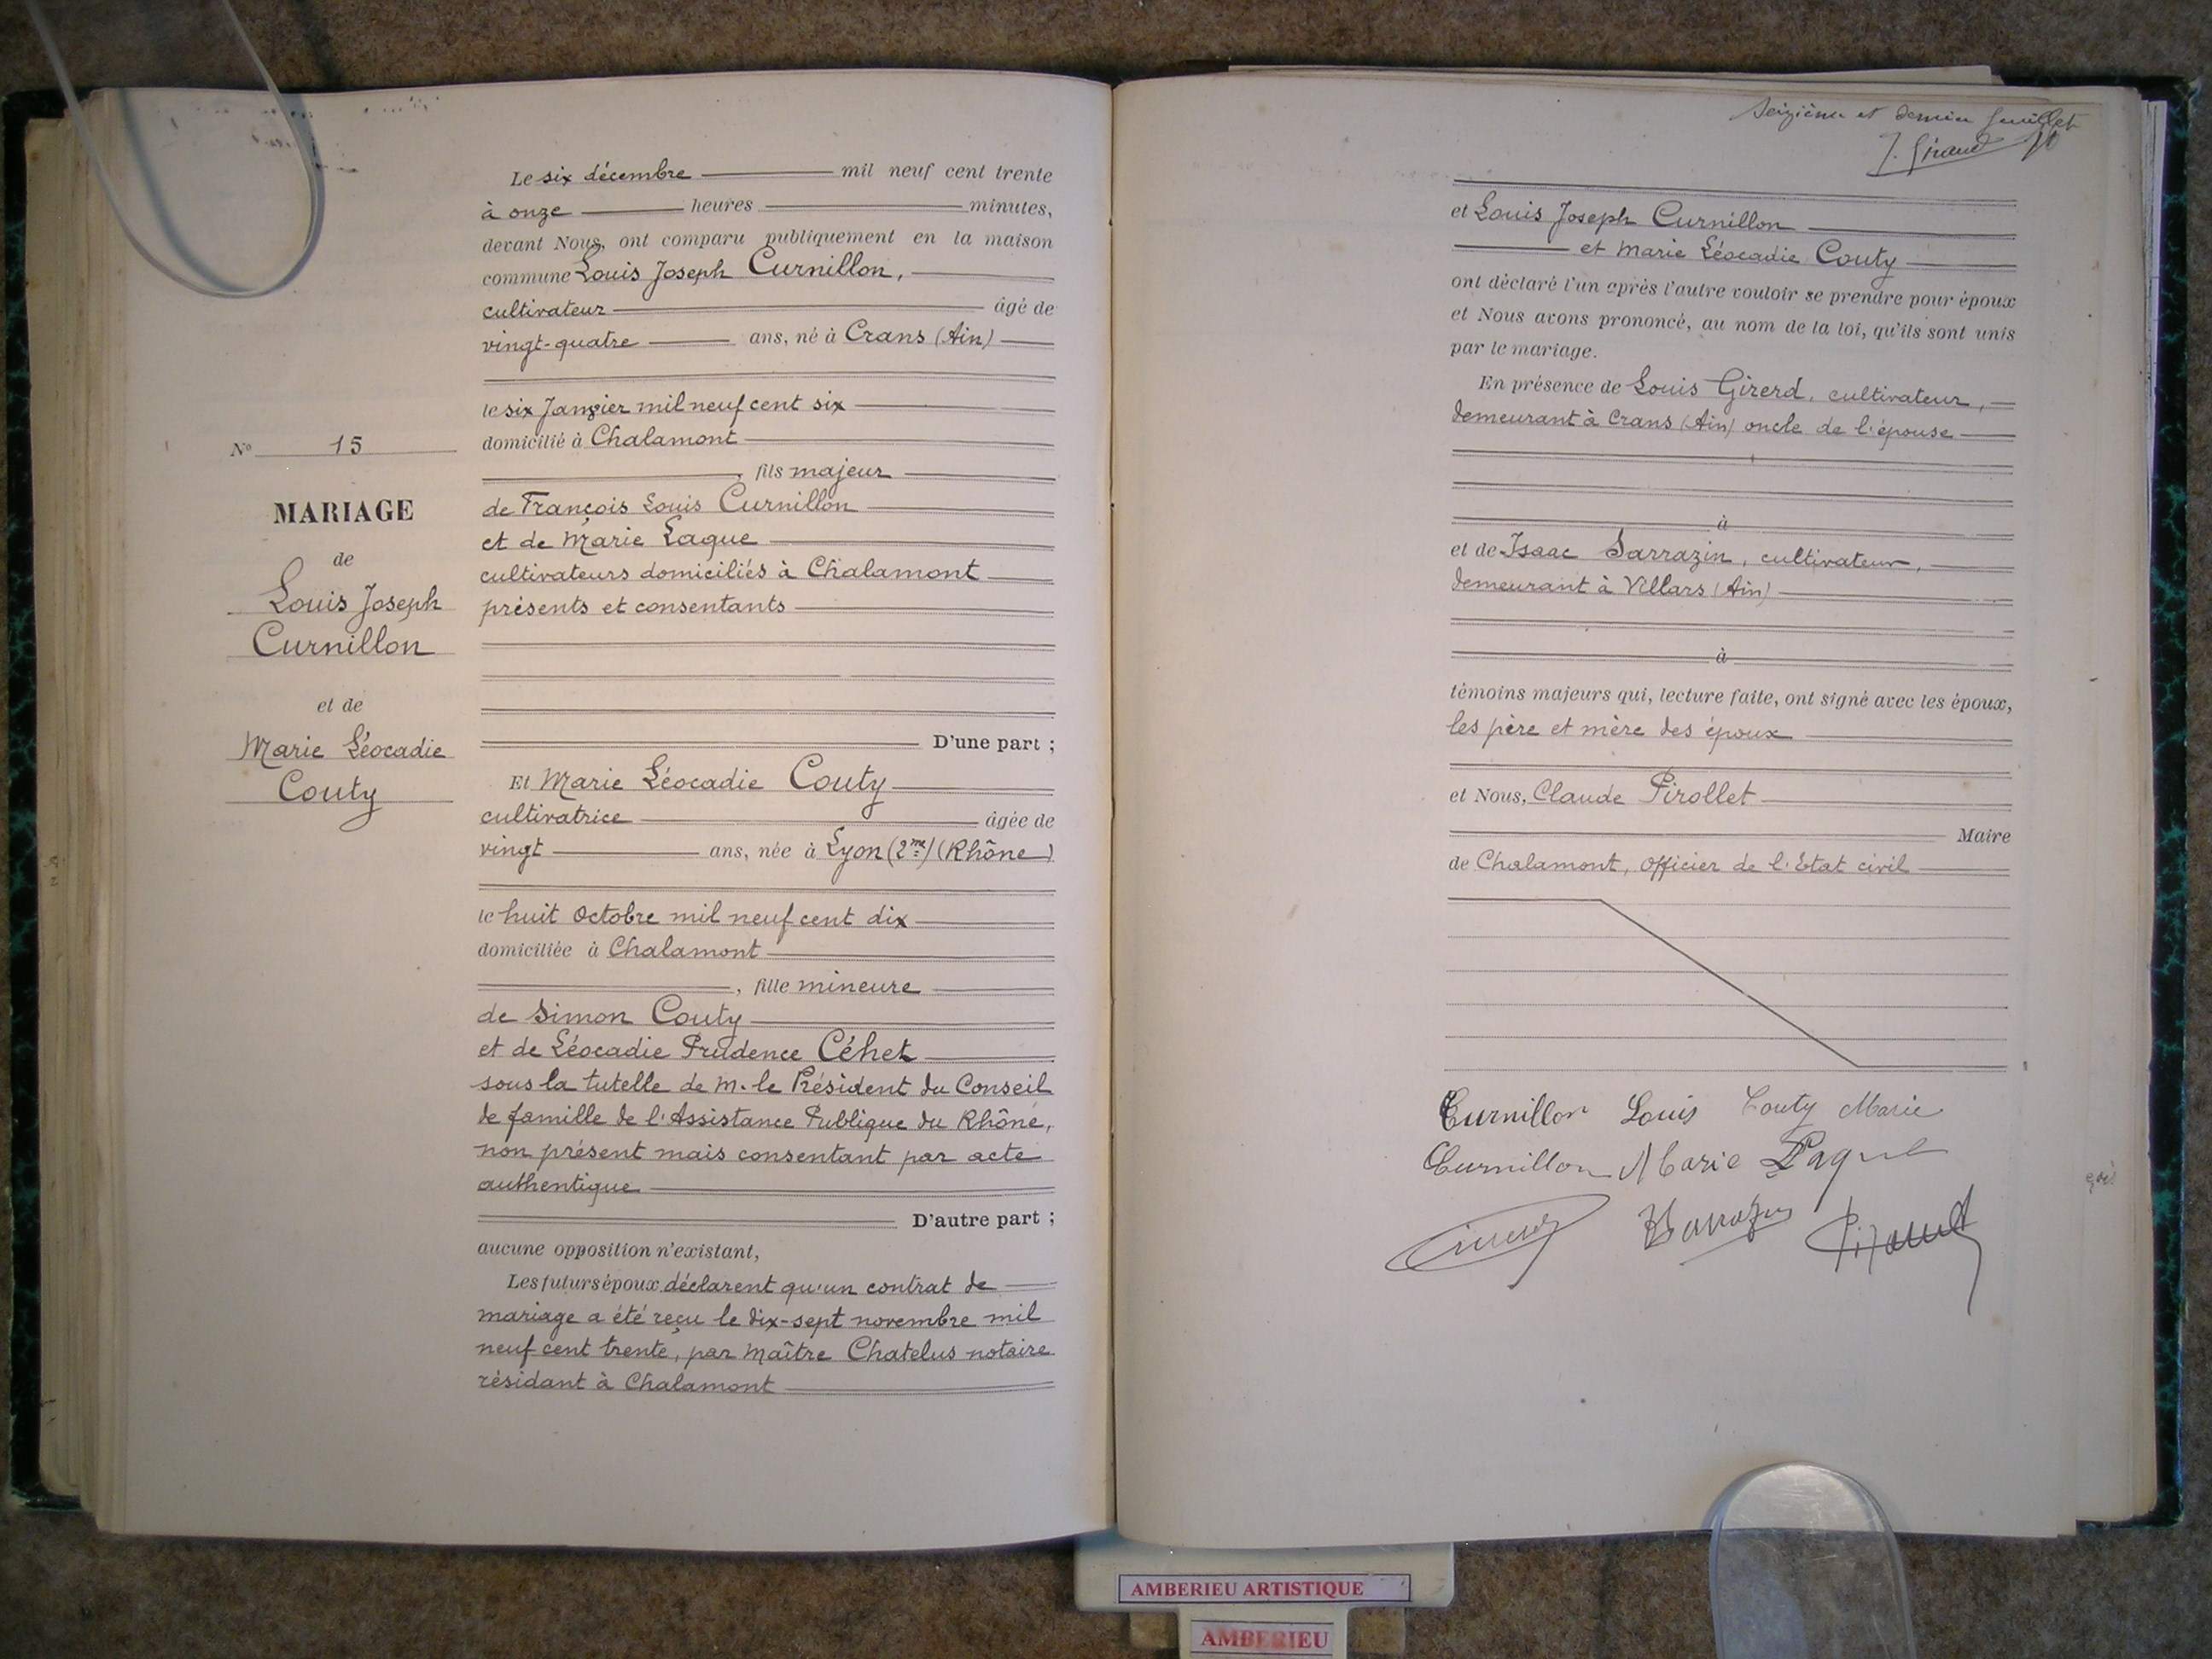 Le six décembre mil neuf cent trente
à onze heures minutes,
devant Nous, ont comparu publiquement en la maison
commune Louis Joseph Curnillon,
cultivateur âgé de
vingt-quatre ans, né à Crans (Ain)
le six Janvier mil neuf cent six
domicilié à Chalamont
, fils majeur
de François Louis Curnillon
et de Marie Laque
cultivateurs domiciliés à Chalamont
présents et consentants
D'une part ;
Et Marie Léocadie Couty
cultivatrice âgée de
vingt ans, née à Lyon (2me) (Rhône)
le huit Octobre mil neuf cent dix
domiciliée à Chalamont
, fille mineure
de Simon Couty
et de Léocadie Prudence Céhet
sous la tutelle de M. le Président du Conseil
de famille de l'Assistance Publique du Rhône,
non présent mais consentant par acte
authentique
D'autre part ;
aucune opposition n'existant,
Les futurs époux déclarent qu'un contrat de
mariage a été reçu le dix-sept novembre mil
neuf cent trente, par Maître Chatelus notaire
résidant à Chalamont
N° 15
MARIAGE
de
Louis Joseph
Curnillon
et de
Marie Léocadie
Couty
Seizième et dernier feuillet
J. Giraud 16
et Louis Joseph Curnillon
et Marie Léocadie Couty
ont déclaré l'un après l'autre vouloir se prendre pour époux
et Nous avons prononcé, au nom de la loi, qu'ils sont unis
par le mariage.
En présence de Louis Girerd, cultivateur,
demeurant à Crans (Ain) oncle de l'épouse
à
et de Isaac Sarrazin, cultivateur,
demeurant à Villars (Ain)
à
témoins majeurs qui, lecture faite, ont signé avec les époux,
les père et mère des époux
et Nous, Claude Pirollet
Maire
de Chalamont, Officier de l'Etat civil
Curnillon Louis Couty Marie
Curnillon Marie Laque
AMBERIEU ARTISTIQUE
AMBERIEU